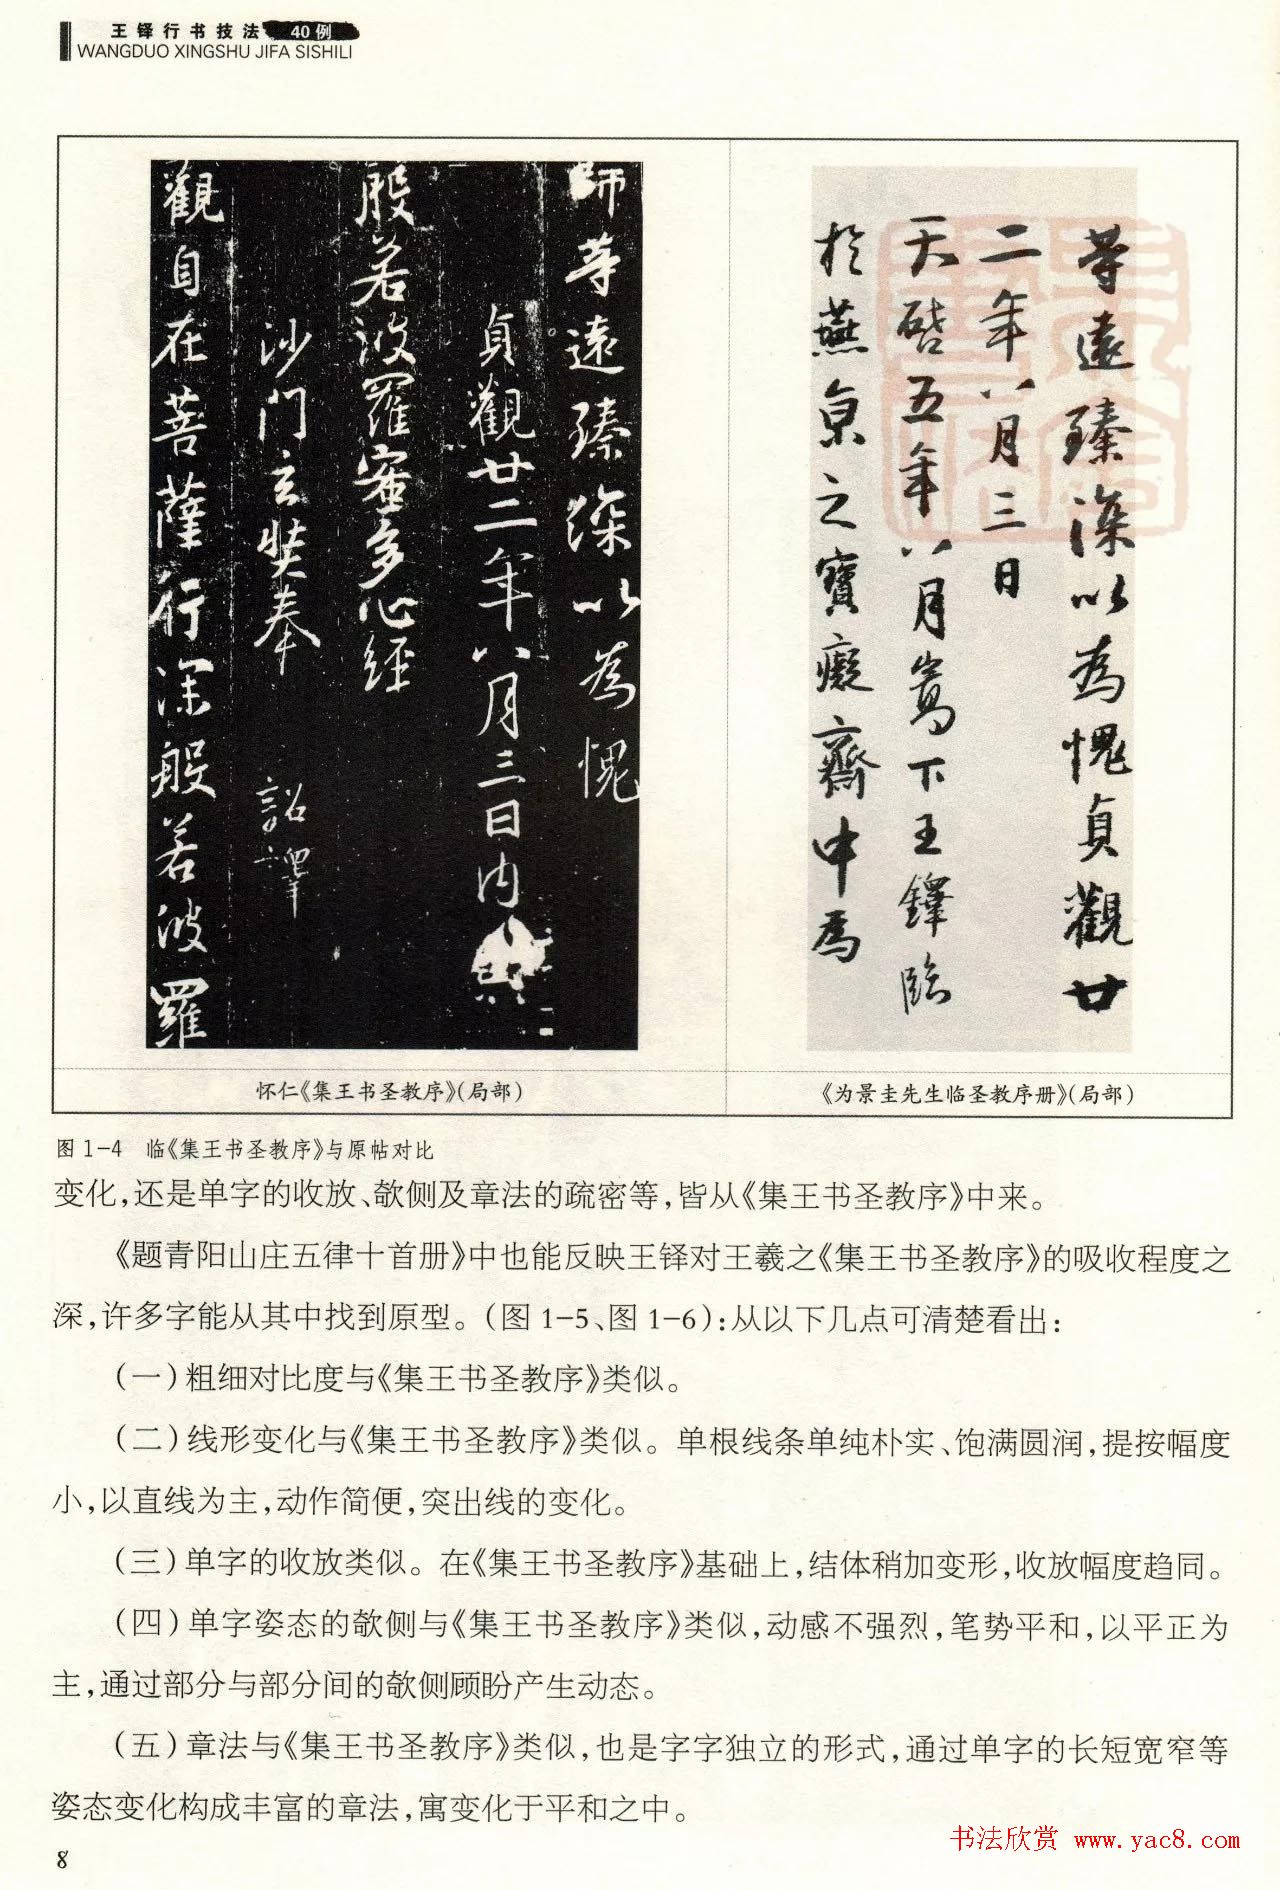 王铎行书技法 40例
WANGDUO XINGSHU JIFA SISHILI
師等遠臻深以為愧
貞觀廿二年八月三日内
般若波羅蜜多心經
沙門玄奘奉
詔譯
觀自在菩薩行深般若波羅
等遠臻深以為愧貞觀廿
二年八月三日
天啓五年八月嵩下王鐸臨
於燕京之寶癡齋中為
怀仁《集王书圣教序》(局部)
《为景圭先生临圣教序册》(局部)
图 1-4 临《集王书圣教序》与原帖对比
变化,还是单字的收放、欹侧及章法的疏密等,皆从《集王书圣教序》中来。
《题青阳山庄五律十首册》中也能反映王铎对王羲之《集王书圣教序》的吸收程度之
深,许多字能从其中找到原型。(图 1-5、图 1-6):从以下几点可清楚看出:
(一)粗细对比度与《集王书圣教序》类似。
(二)线形变化与《集王书圣教序》类似。单根线条单纯朴实、饱满圆润,提按幅度
小,以直线为主,动作简便,突出线的变化。
(三)单字的收放类似。在《集王书圣教序》基础上,结体稍加变形,收放幅度趋同。
(四)单字姿态的欹侧与《集王书圣教序》类似,动感不强烈,笔势平和,以平正为
主,通过部分与部分间的欹侧顾盼产生动态。
(五)章法与《集王书圣教序》类似,也是字字独立的形式,通过单字的长短宽窄等
姿态变化构成丰富的章法,寓变化于平和之中。
8
书法欣赏 www.yac8.com